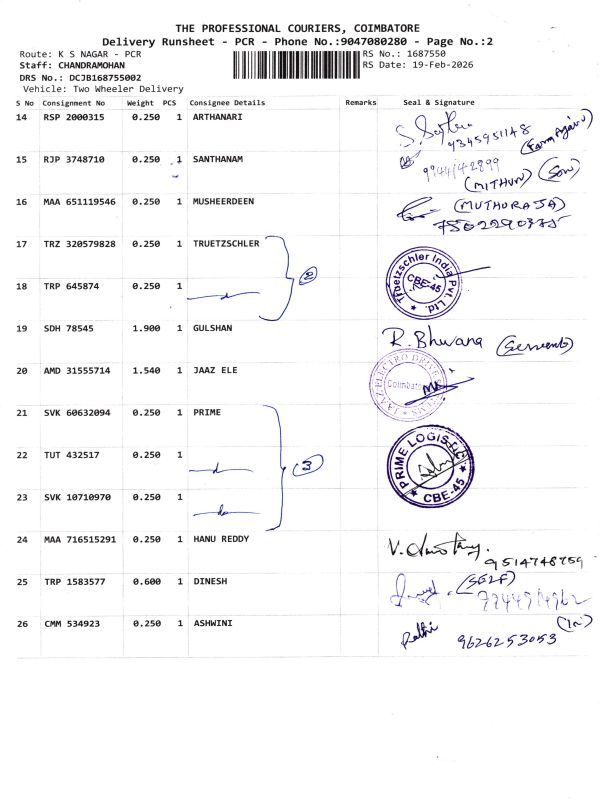 THE PROFESSIONAL COURIERS, COIMBATORE
Delivery Runsheet - PCR - Phone No.:9047080280 - Page No.:2
Route: K S NAGAR - PCR RS No.: 1687550
Staff: CHANDRAMOHAN RS Date: 19-Feb-2026
DRS No.: DCJB168755002
Vehicle: Two Wheeler Delivery
S No Consignment No Weight PCS Consignee Details Remarks Seal & Signature
14 RSP 2000315 0.250 1 ARTHANARI
9345951148
15 RJP 3748710 0.250 1 SANTHANAM
(MITHUN) (Son)
16 MAA 651119546 0.250 1 MUSHEERDEEN (MUTHURAJA)
7502290375
17 TRZ 320579828 0.250 1 TRUETZSCHLER
Truetzschler India Pvt. Ltd. CBE-45
18 TRP 645874 0.250 1
19 SDH 78545 1.900 1 GULSHAN R. Bhuvana
20 AMD 31555714 1.540 1 JAAZ ELE
JAAZ ELECTRO DRIVE Coimbato
21 SVK 60632094 0.250 1 PRIME
22 TUT 432517 0.250 1 3
PRIME LOGISTIC CBE-45
23 SVK 10710970 0.250 1
24 MAA 716515291 0.250 1 HANU REDDY
9514748759
25 TRP 1583577 0.600 1 DINESH (SELF)
26 CMM 534923 0.250 1 ASHWINI Rathi 9626253053